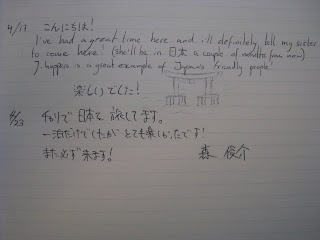 4/17 こんにちは!
I've had a great time here and i'll definitely tell my sister
to come here! (she'll be in 日本 a couple of months from now)
J-hoppers is a great example of Japan's friendly people
楽しいでした!
4/23 チャリで日本を旅してます。
一泊だけでしたがとても楽しかったです!
また必ず来ます! 森 俊介